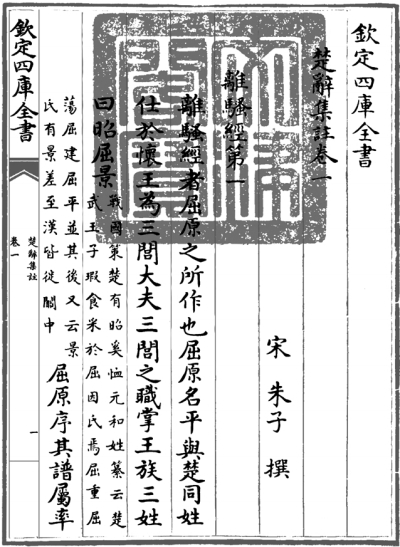 欽定四庫全書
楚辭集註卷一
宋 朱子 撰
離騷經第一
離騷經者屈原之所作也屈原名平與楚同姓
仕於懷王為三閭大夫三閭之職掌王族三姓
曰昭屈景
戰國策楚有昭奚恤元和姓纂云楚
武王子瑕食采於屈因氏焉屈重屈
蕩屈建屈平並其後又云景
氏有景差至漢皆徙關中
屈原序其譜屬率
欽定四庫全書
楚辭集註
卷一
一
文淵閣寶